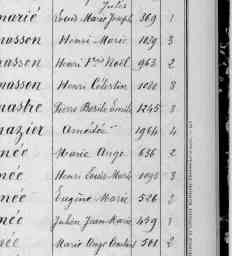 Jules
marié Louis Marie Joseph 369 1
masson Henri Marie 1039 3
masson Henri Noël 963 2
masson Henri Célestin 1080 8
mastre Pierre Basile Emile 1245 3
mazier Amédée 1964 4
née Marie Ange 636 2
née Henri Louis Marie 3
née Eugène Marie 526 2
née Julien Jean Marie 459 1
née Marie Ange 501 2